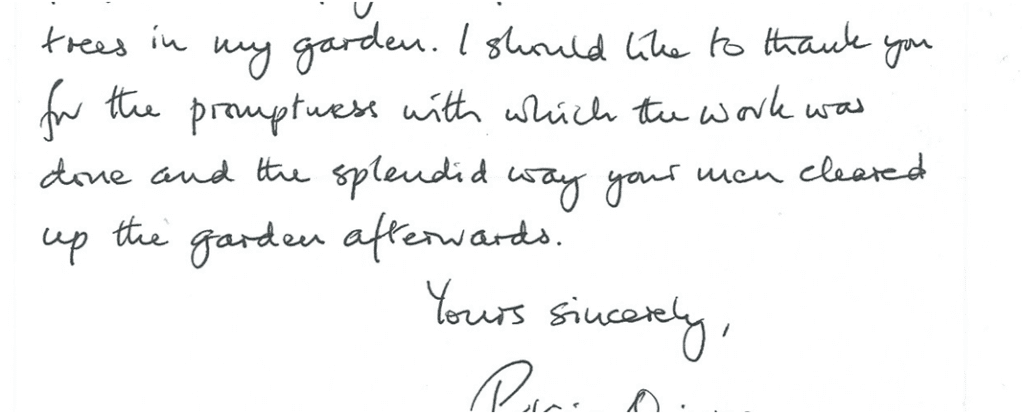 trees in my garden. I should like to thank you
for the promptness with which the work was
done and the splendid way your men cleared
up the garden afterwards.
Yours sincerely,